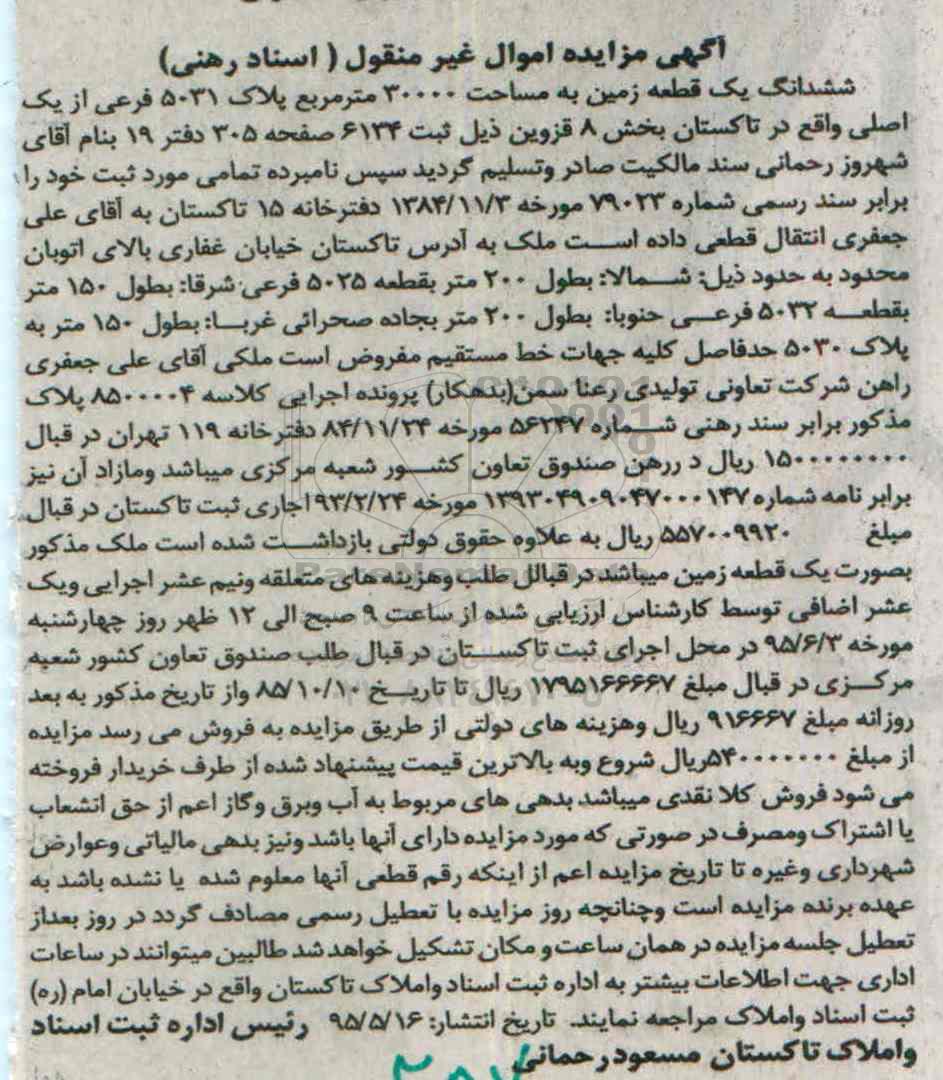 آگهی مزایده اموال غیر منقول ( اسناد رهنی)
ششدانگ یک قطعه زمین به مساحت ۳۰۰۰۰ مترمربع پلاک ۵۰۳۱ فرعی از یک
اصلی واقع در تاکستان بخش ۸ قزوین ذیل ثبت ۶۱۳۴ صفحه ۳۰۵ دفتر ۱۹ بنام آقای
شهروز رحمانی سند مالکیت صادر وتسلیم گردید سپس نامبرده تمامی مورد ثبت خود را
برابر سند رسمی شماره ۷۹۰۲۳ مورخه ۱۳۸۴/۱۱/۳ دفترخانه ۱۵ تاکستان به آقای علی
جعفری انتقال قطعی داده است ملک به آدرس تاکستان خیابان غفاری بالای اتوبان
محدود به حدود ذیل: شمالا: بطول ۲۰۰ متر بقطعه ۵۰۲۵ فرعی شرقا: بطول ۱۵۰ متر
بقطعه ۵۰۳۲ فرعی حنوبا: بطول ۲۰۰ متر بجاده صحرائی غربا: بطول ۱۵۰ متر به
پلاک ۵۰۳۰ حدفاصل کلیه جهات خط مستقیم مفروض است ملکی آقای علی جعفری
راهن شرکت تعاونی تولیدی رعنا سمن(بدهکار) پرونده اجرایی کلاسه ۸۵۰۰۰۰۴ پلاک
مذکور برابر سند رهنی شماره ۵۶۲۴۷ مورخه ۸۴/۱۱/۲۴ دفترخانه ۱۱۹ تهران در قبال
۱۵۰۰۰۰۰۰۰۰ ریال د ررهن صندوق تعاون کشور شعبه مرکزی میباشد ومازاد آن نیز
برابر نامه شماره ۱۳۹۳۰۴۹۰۹۰۴۷۰۰۰۱۴۷ مورخه ۹۳/۲/۲۴ اجاری ثبت تاکستان در قبال
مبلغ ۵۵۷۰۰۹۹۲۰ ریال به علاوه حقوق دولتی بازداشت شده است ملک مذکور
بصورت یک قطعه زمین میباشد در قبالل طلب وهزینه های متعلقه ونیم عشر اجرایی ویک
عشر اضافی توسط کارشناس ارزیابی شده از ساعت ۹ صبح الی ۱۲ ظهر روز چهارشنبه
مورخه ۹۵/۶/۳ در محل اجرای ثبت تاکستان در قبال طلب صندوق تعاون کشور شعبه
مرکزی در قبال مبلغ ۱۷۹۵۱۶۶۶۶۷ ریال تا تاریخ ۸۵/۱۰/۱۰ واز تاریخ مذکور به بعد
روزانه مبلغ ۹۱۶۶۶۷ ریال وهزینه های دولتی از طریق مزایده به فروش می رسد مزایده
از مبلغ ۵۴۰۰۰۰۰۰۰ریال شروع وبه بالاترین قیمت پیشنهاد شده از طرف خریدار فروخته
می شود فروش کلا نقدی میباشد بدهی های مربوط به آب وبرق وگاز اعم از حق انشعاب
یا اشتراک ومصرف در صورتی که مورد مزایده دارای آنها باشد ونیز بدهی مالیاتی وعوارض
شهرداری وغیره تا تاریخ مزایده اعم از اینکه رقم قطعی آنها معلوم شده یا نشده باشد به
عهده برنده مزایده است وچنانچه روز مزایده با تعطیل رسمی مصادف گردد در روز بعداز
تعطیل جلسه مزایده در همان ساعت و مکان تشکیل خواهد شد طالبین میتوانند در ساعات
اداری جهت اطلاعات بیشتر به اداره ثبت اسناد واملاک تاکستان واقع در خیابان امام (ره)
ثبت اسناد واملاک مراجعه نمایند. تاریخ انتشار: ۹۵/۵/۱۶ رئیس اداره ثبت اسناد
واملاک تاکستان مسعود رحمانی